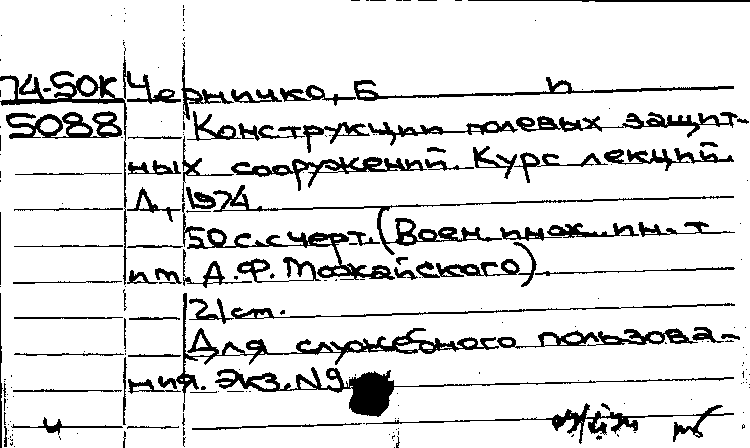 74-50К Черничко, Б п
5088 Конструкции полевых защит-
ных сооружений. Курс лекций.
Л., 1974.
50 с. с черт. (Воен. инж. ин-т
им. А.Ф. Можайского).
21 ст.
Для служебного пользова-
ния. Экз. N9
ч